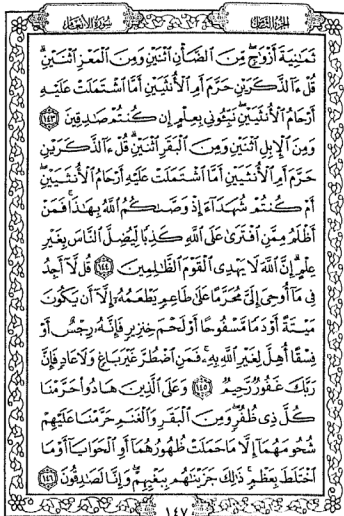 الجزء الثامن
سورة الأنعام
ثَمَٰنِيَةَ أَزْوَٰجٍ مِّنَ ٱلضَّأْنِ ٱثْنَيْنِ وَمِنَ ٱلْمَعْزِ ٱثْنَيْنِ
قُلْ ءَآلذَّكَرَيْنِ حَرَّمَ أَمِ ٱلْأُنثَيَيْنِ أَمَّا ٱشْتَمَلَتْ عَلَيْهِ
أَرْحَامُ ٱلْأُنثَيَيْنِ نَبِّـُٔونِى بِعِلْمٍ إِن كُنتُمْ صَٰدِقِينَ ١٤٣
وَمِنَ ٱلْإِبِلِ ٱثْنَيْنِ وَمِنَ ٱلْبَقَرِ ٱثْنَيْنِ قُلْ ءَآلذَّكَرَيْنِ
حَرَّمَ أَمِ ٱلْأُنثَيَيْنِ أَمَّا ٱشْتَمَلَتْ عَلَيْهِ أَرْحَامُ ٱلْأُنثَيَيْنِ
أَمْ كُنتُمْ شُهَدَآءَ إِذْ وَصَّىٰكُمُ ٱللَّهُ بِهَٰذَا فَمَنْ
أَظْلَمُ مِمَّنِ ٱفْتَرَىٰ عَلَى ٱللَّهِ كَذِبًا لِّيُضِلَّ ٱلنَّاسَ بِغَيْرِ
عِلْمٍ إِنَّ ٱللَّهَ لَا يَهْدِى ٱلْقَوْمَ ٱلظَّٰلِمِينَ ١٤٤ قُل لَّآ أَجِدُ
فِى مَآ أُوحِىَ إِلَىَّ مُحَرَّمًا عَلَىٰ طَاعِمٍ يَطْعَمُهُۥٓ إِلَّآ أَن يَكُونَ
مَيْتَةً أَوْ دَمًا مَّسْفُوحًا أَوْ لَحْمَ خِنزِيرٍ فَإِنَّهُۥ رِجْسٌ أَوْ
فِسْقًا أُهِلَّ لِغَيْرِ ٱللَّهِ بِهِۦ فَمَنِ ٱضْطُرَّ غَيْرَ بَاغٍ وَلَا عَادٍ فَإِنَّ
رَبَّكَ غَفُورٌ رَّحِيمٌ ١٤٥ وَعَلَى ٱلَّذِينَ هَادُوا۟ حَرَّمْنَا
كُلَّ ذِى ظُفُرٍ وَمِنَ ٱلْبَقَرِ وَٱلْغَنَمِ حَرَّمْنَا عَلَيْهِمْ
شُحُومَهُمَآ إِلَّا مَا حَمَلَتْ ظُهُورُهُمَآ أَوِ ٱلْحَوَايَآ أَوْ مَا
ٱخْتَلَطَ بِعَظْمٍ ذَٰلِكَ جَزَيْنَٰهُم بِبَغْيِهِمْ وَإِنَّا لَصَٰدِقُونَ ١٤٦
١٤٧